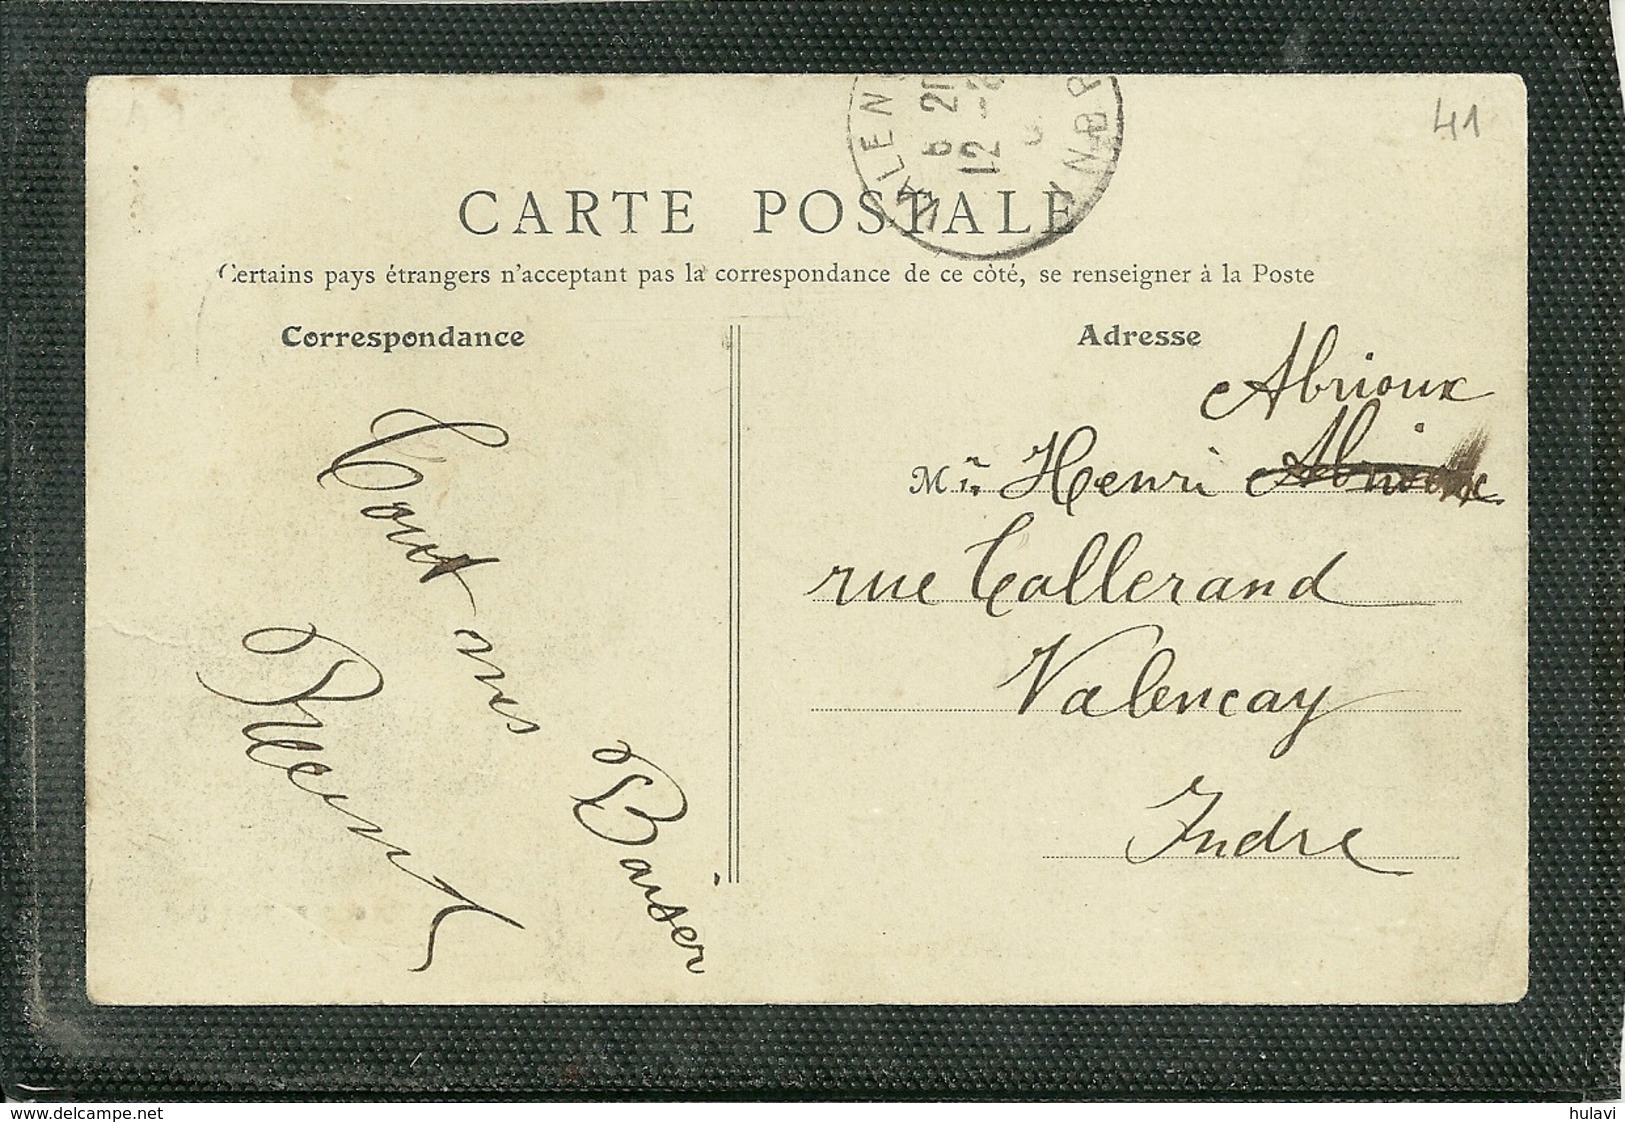 41
CARTE POSTALE
Certains pays étrangers n'acceptant pas la correspondance de ce côté, se renseigner à la Poste
Correspondance
Tout mes Baiser
Adresse
Abrioux
Mr Henri Abrioux
rue Tallerand
Valencay
Indre
www.delcampe.net
hulavi